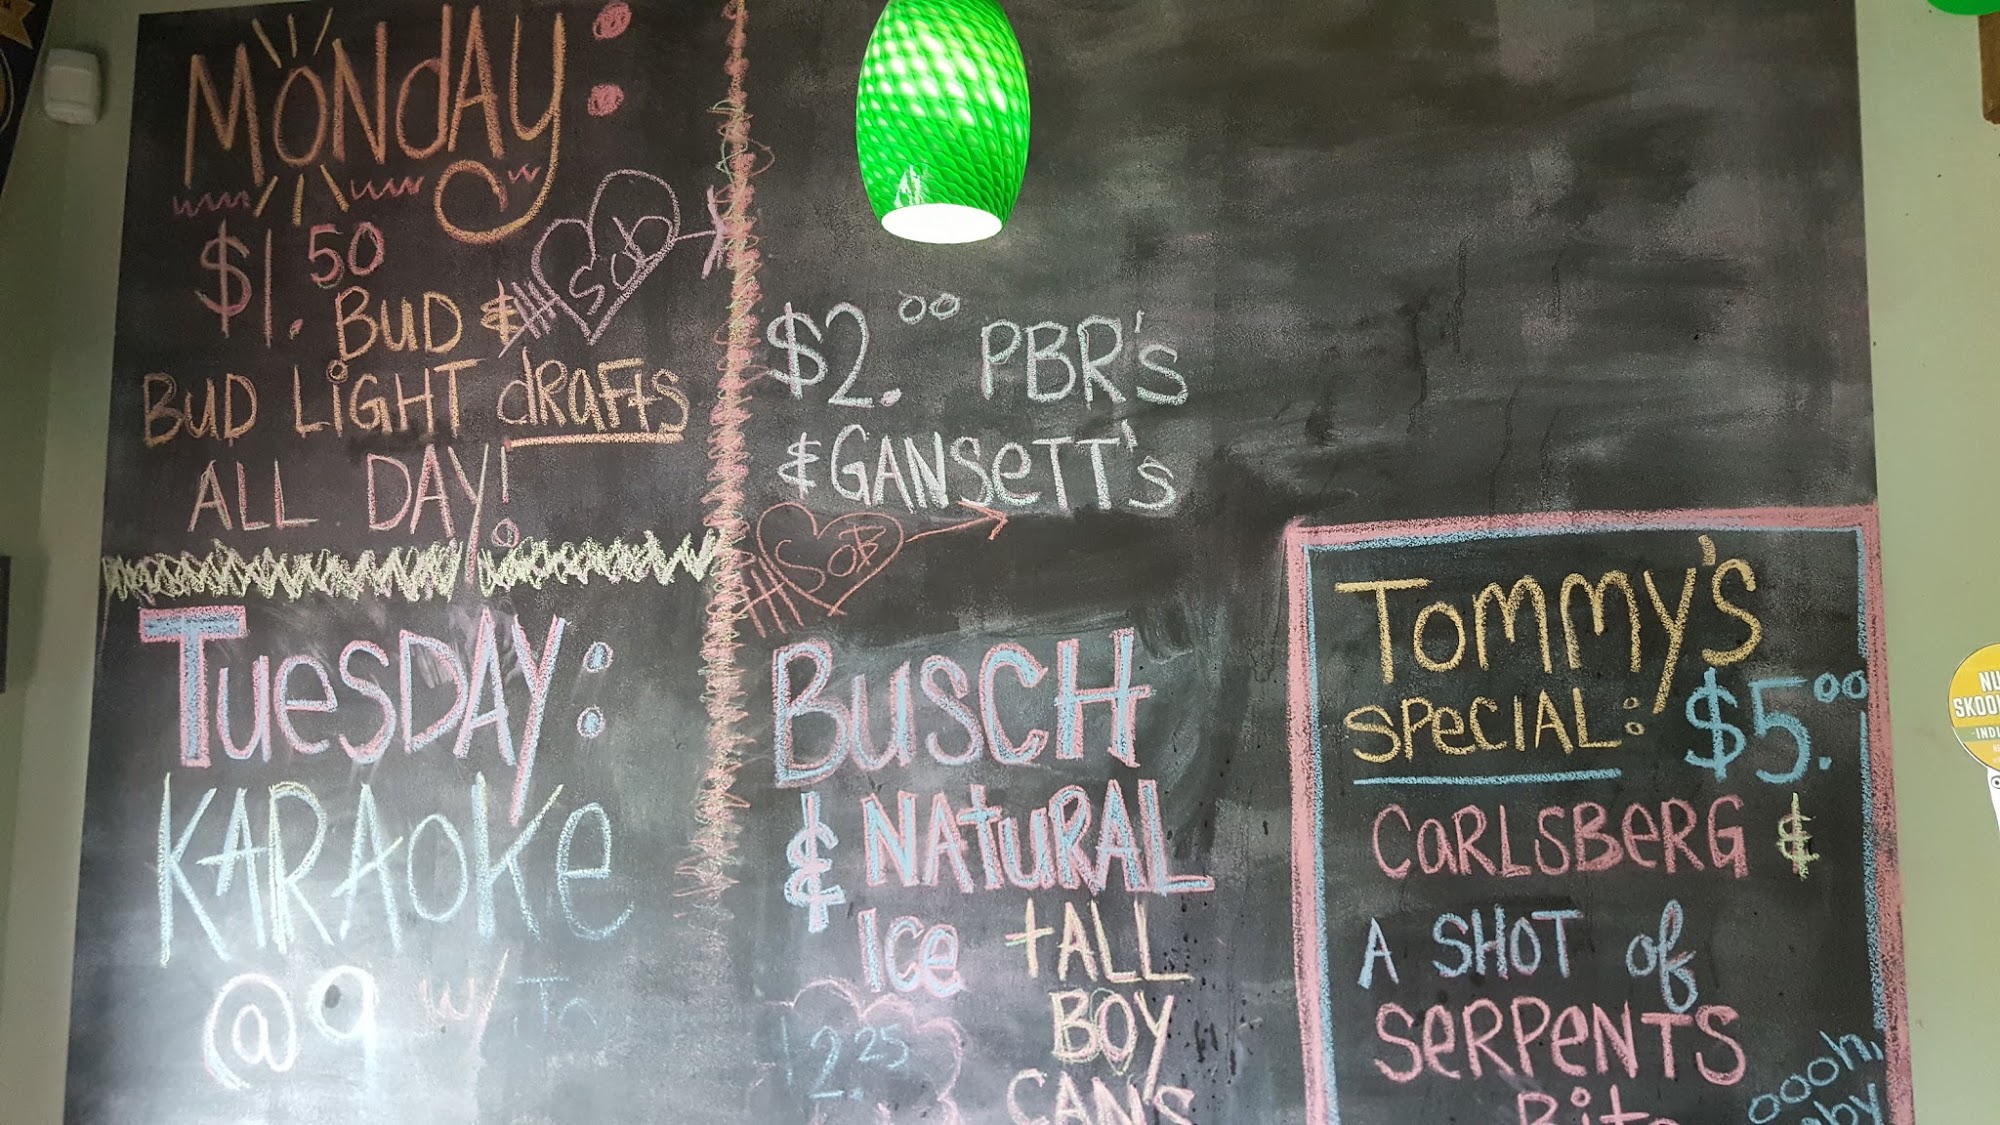 MONdAy:
$1.50
BUD &
BUD LiGHT dRAFtS
ALL DAY!
SOB
TuesDAY:
KARAoKe
@ 9 w/
$2.00 PBR's
& GANSeTT's
SOB
BuSCH
& NAtuRAL
Ice
tALL
BOY
CAN'S
2.25
TOmmy's
SPeCIAL: $5.00
CaRLSBeRG &
A SHOT of
SeRPeNTS
Bite
oooh,